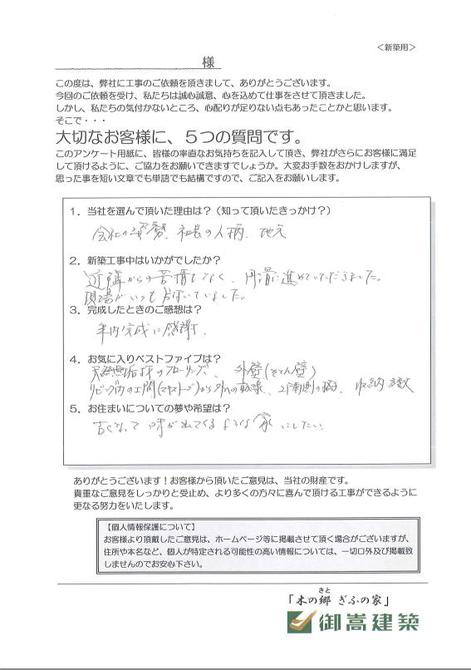 ＜新築用＞
様
この度は、弊社に工事のご依頼を頂きまして、ありがとうございます。
今回のご依頼を受け、私たちは誠心誠意、心を込めて仕事をさせて頂きました。
しかし、私たちの気付かないところ、心配りが足りない点もあったことかと思います。
そこで・・・
大切なお客様に、５つの質問です。
このアンケート用紙に、皆様の率直なお気持ちを記入して頂き、弊社がさらにお客様に満足
して頂けるように、ご協力をお願いできますでしょうか。大変お手数をおかけしますが、
思った事を短い文章でも単語でも結構ですので、ご記入をお願いします。
１．当社を選んで頂いた理由は？（知って頂いたきっかけ？）
会社の姿勢、社長の人柄、地元
２．新築工事中はいかがでしたか？
近隣からの苦情もなく、円滑に進めていただきました。
現場がいつも片付いていました。
３．完成したときのご感想は？
年内完成に感謝
４．お気に入りベストファイブは？
フローリング、外壁
リビング 収納多数
５．お住まいについての夢や希望は？
古くなって味が出てくるような家にしたい
ありがとうございます！お客様から頂いたご意見は、当社の財産です。
貴重なご意見をしっかりと受止め、より多くの方々に喜んで頂ける工事ができるように
更なる努力をいたします。
【個人情報保護について】
お客様より頂戴したご意見は、ホームページ等に掲載させて頂く場合がございますが、
住所や本名など、個人が特定される可能性の高い情報については、一切口外及び掲載致
しませんのでお安心下さい。
さと
「木の郷 ぎふの家」
御嵩建築